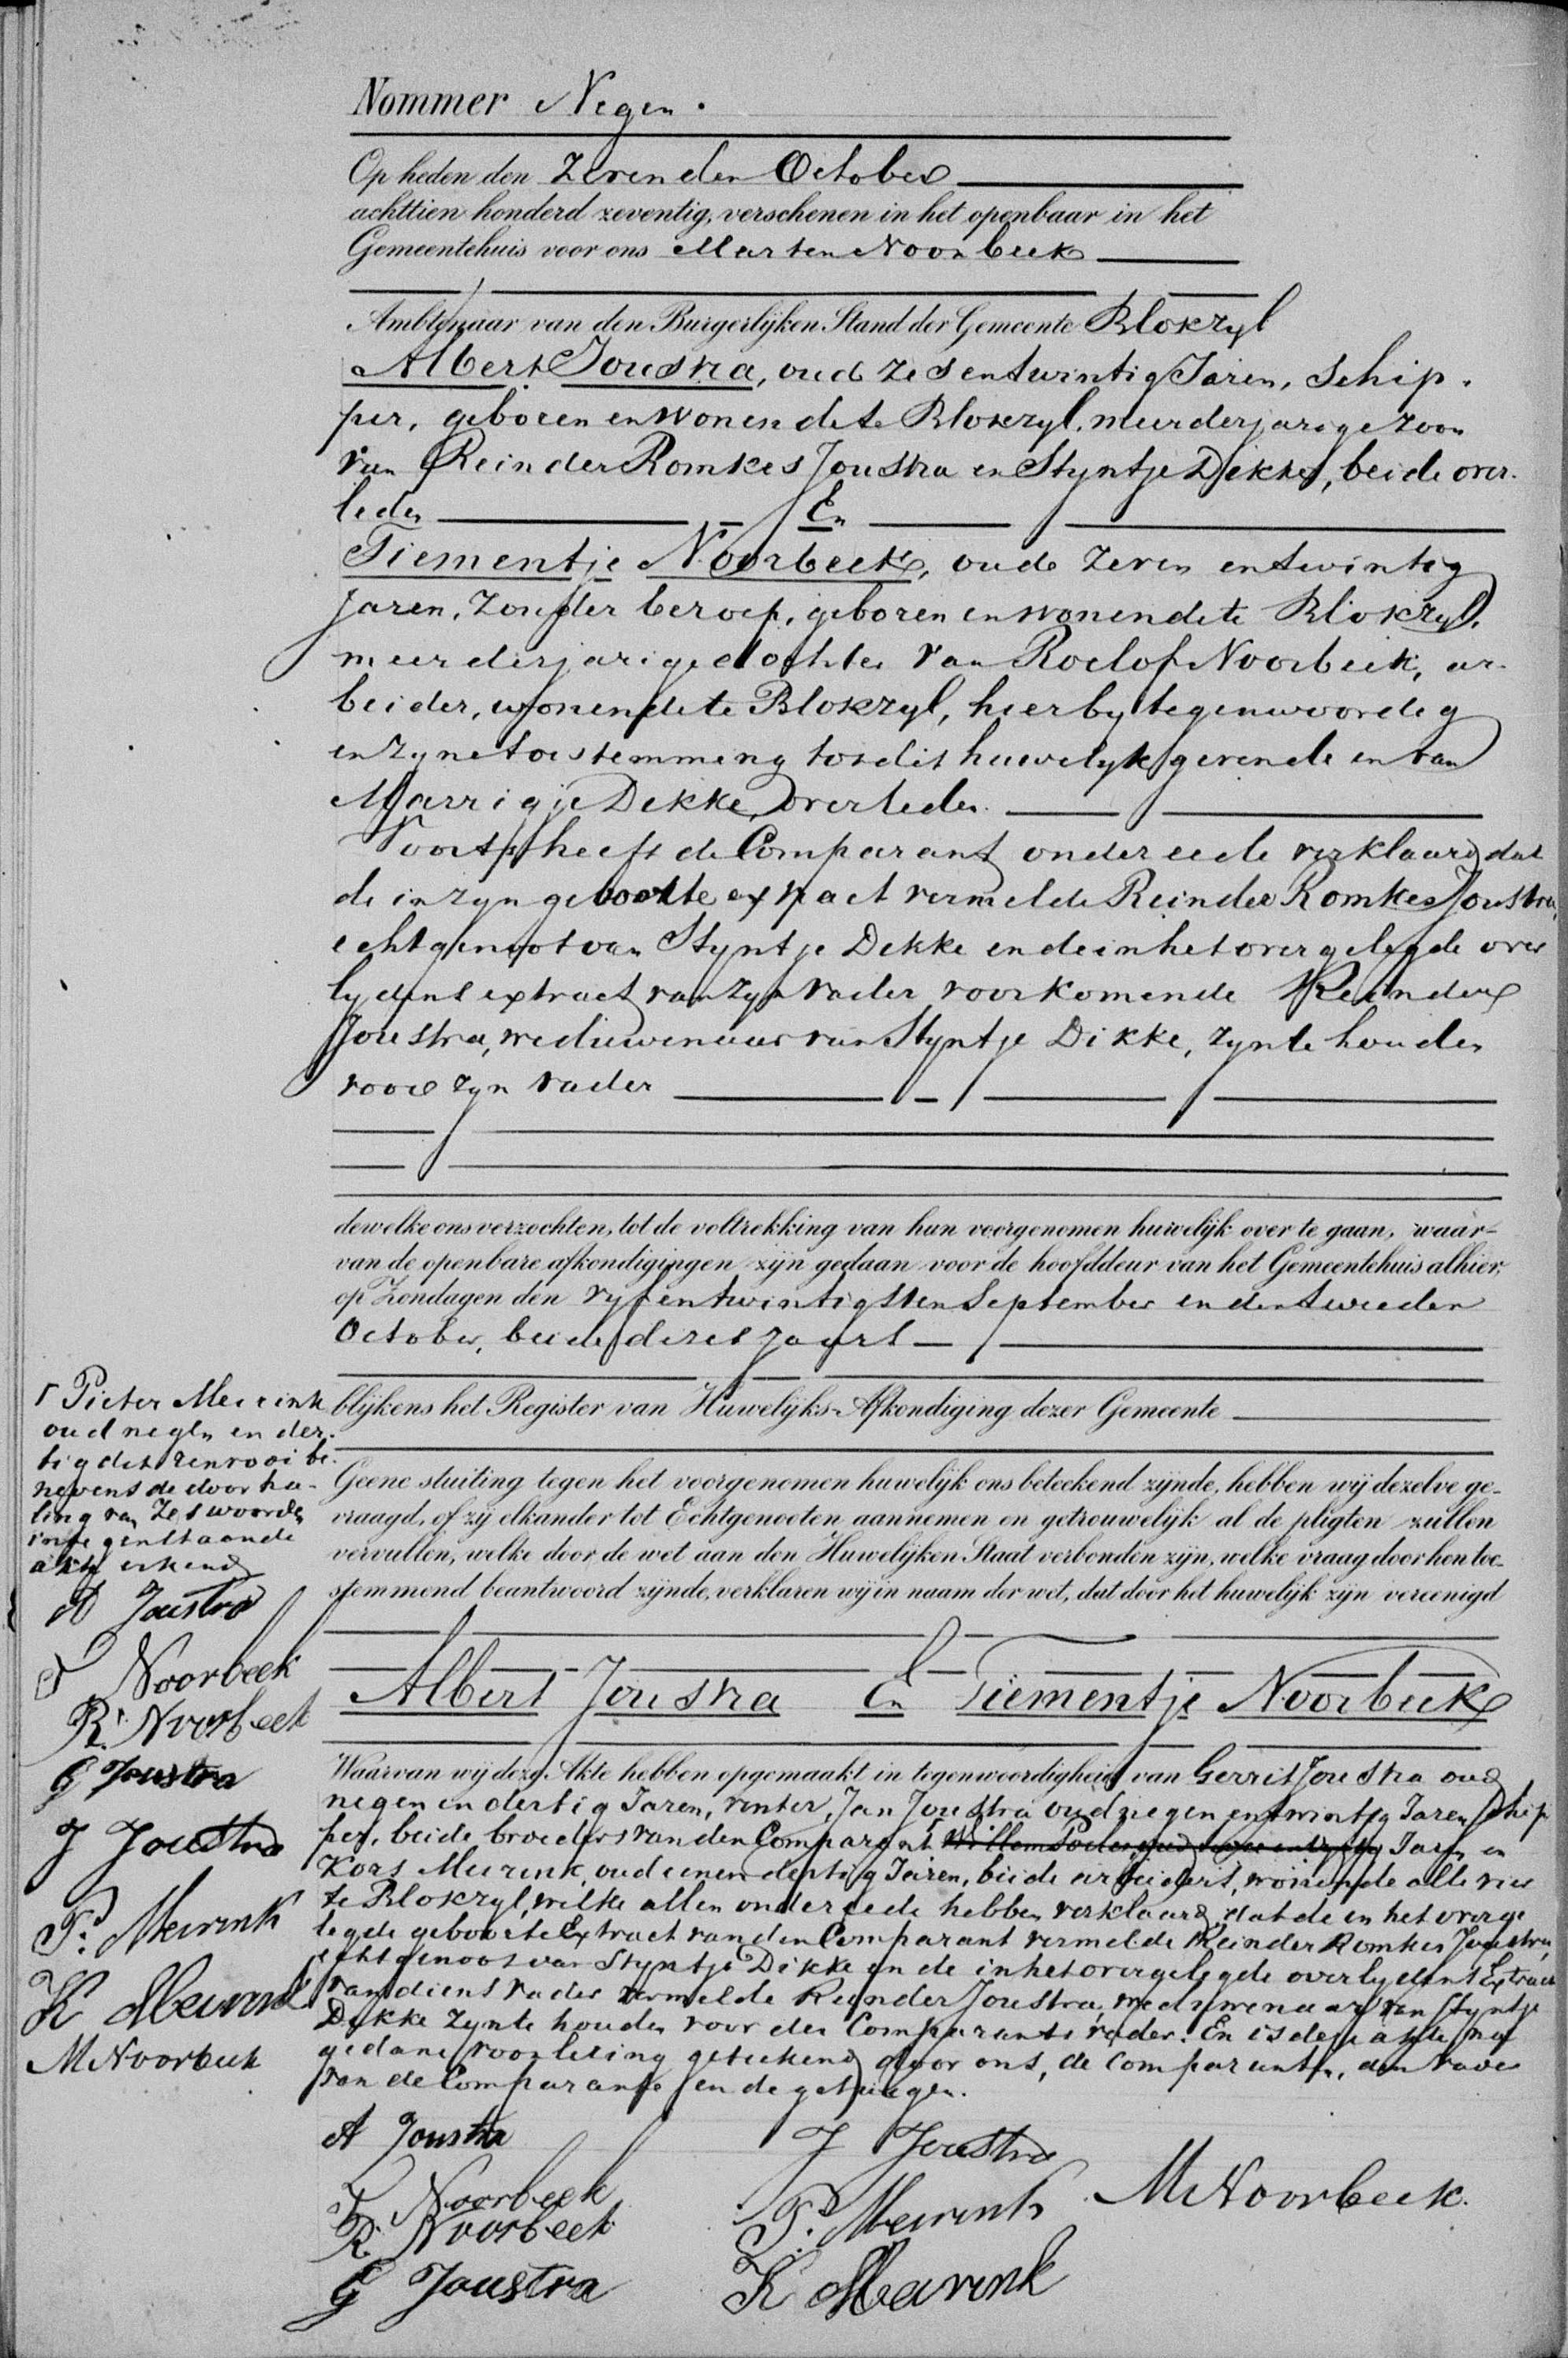 Nommer Negen.
Op heden den Zevenden October
achttien honderd zeventig, verschenen in het openbaar in het
Gemeentehuis voor ons Marten Noorbeek
Ambtenaar van den Burgerlijken Stand der Gemeente Blokzyl
Albert Joustra, oud zesentwintig Jaren, Schip-
per, geboren en wonende te Blokzyl, meerderjarige zoon
van Reinder Romkes Joustra en Styntje Dikke, beide over-
leden En
Tiementje Noorbeek, oude zeven entwintig
Jaren, zonder beroep, geboren en wonende te Blokzyl,
meerderjarige dochter van Roelof Noorbeek, ar-
beider, wonende te Blokzyl, hierby tegenwoordig
en zyne toestemming tot dit huwelyk gevende en van
Marrigje Dikke, overleden.
Voorts heeft de Comparant onder eede verklaard dat
de in zyn geboorte extract vermelde Reinder Romkes Joustra,
echtgenoot van Styntje Dikke en de in het overgelegde over
lydens extract van zyn vader voorkomende Reinder
Joustra, weduwenaar van Styntje Dikke, zyn te houden
voor zyn vader
dewelke ons verzochten, tot de voltrekking van hun voorgenomen huwelijk over te gaan, waar-
van de openbare afkondigingen zijn gedaan voor de hoofddeur van het Gemeentehuis alhier,
op Zondagen den vyfentwintigsten September en den tweeden
October, beide dezes jaars
blijkens het Register van Huwelijks-Afkondiging dezer Gemeente
Geene stuiting tegen het voorgenomen huwelijk ons beteekend zijnde, hebben wij dezelve ge-
vraagd, of zij elkander tot Echtgenooten aannemen en getrouwelijk al de pligten zullen
vervullen, welke door de wet aan den Huwelijken Staat verbonden zijn, welke vraag door hen toe-
stemmend beantwoord zijnde, verklaren wij in naam der wet, dat door het huwelijk zijn vereenigd
Albert Joustra En Tiementje Noorbeek
Waarvan wij deze Akte hebben opgemaakt in tegenwoordigheid van Gerrit Joustra oud
negen en dertig Jaren, venter, Jan Joustra oud negen entwintig Jaren Schip
per, beide broeders van den Comparant, Willem Jaren en
Kors Meirink, oud eenen dertig Jaren, beide arbeiders, wonende alle vier
te Blokzyl, welke allen onder eede hebben verklaard, dat de in het overge
legde geboorte Extract van den Comparant vermelde Reinder Romkes Joustra,
echtgenoot van Styntje Dikke en de in het overgelegde overlydens Extract
van diens vader vermelde Reinder Joustra, weduwenaar van Styntje
Dikke zyn te houden voor des Comparants vader. En is deze akte na
gedane voorlezing geteekend door ons, de Comparanten, den vader
van de Comparante en de getuigen.
A Joustra
T Noorbeek
R. Noorbeek
G Joustra
J Joustra
P. Meirink
K Meirink
M Noorbeek.
Pieter Meirink
oud negen en der-
tig dit renvooi be-
nevens de doorha-
ling van zes woorden
in tegenstaande
akte erkend
A Joustra
T Noorbeek
R. Noorbeek
G Joustra
J Joustra
P. Meirink
K Meirink
M Noorbeek